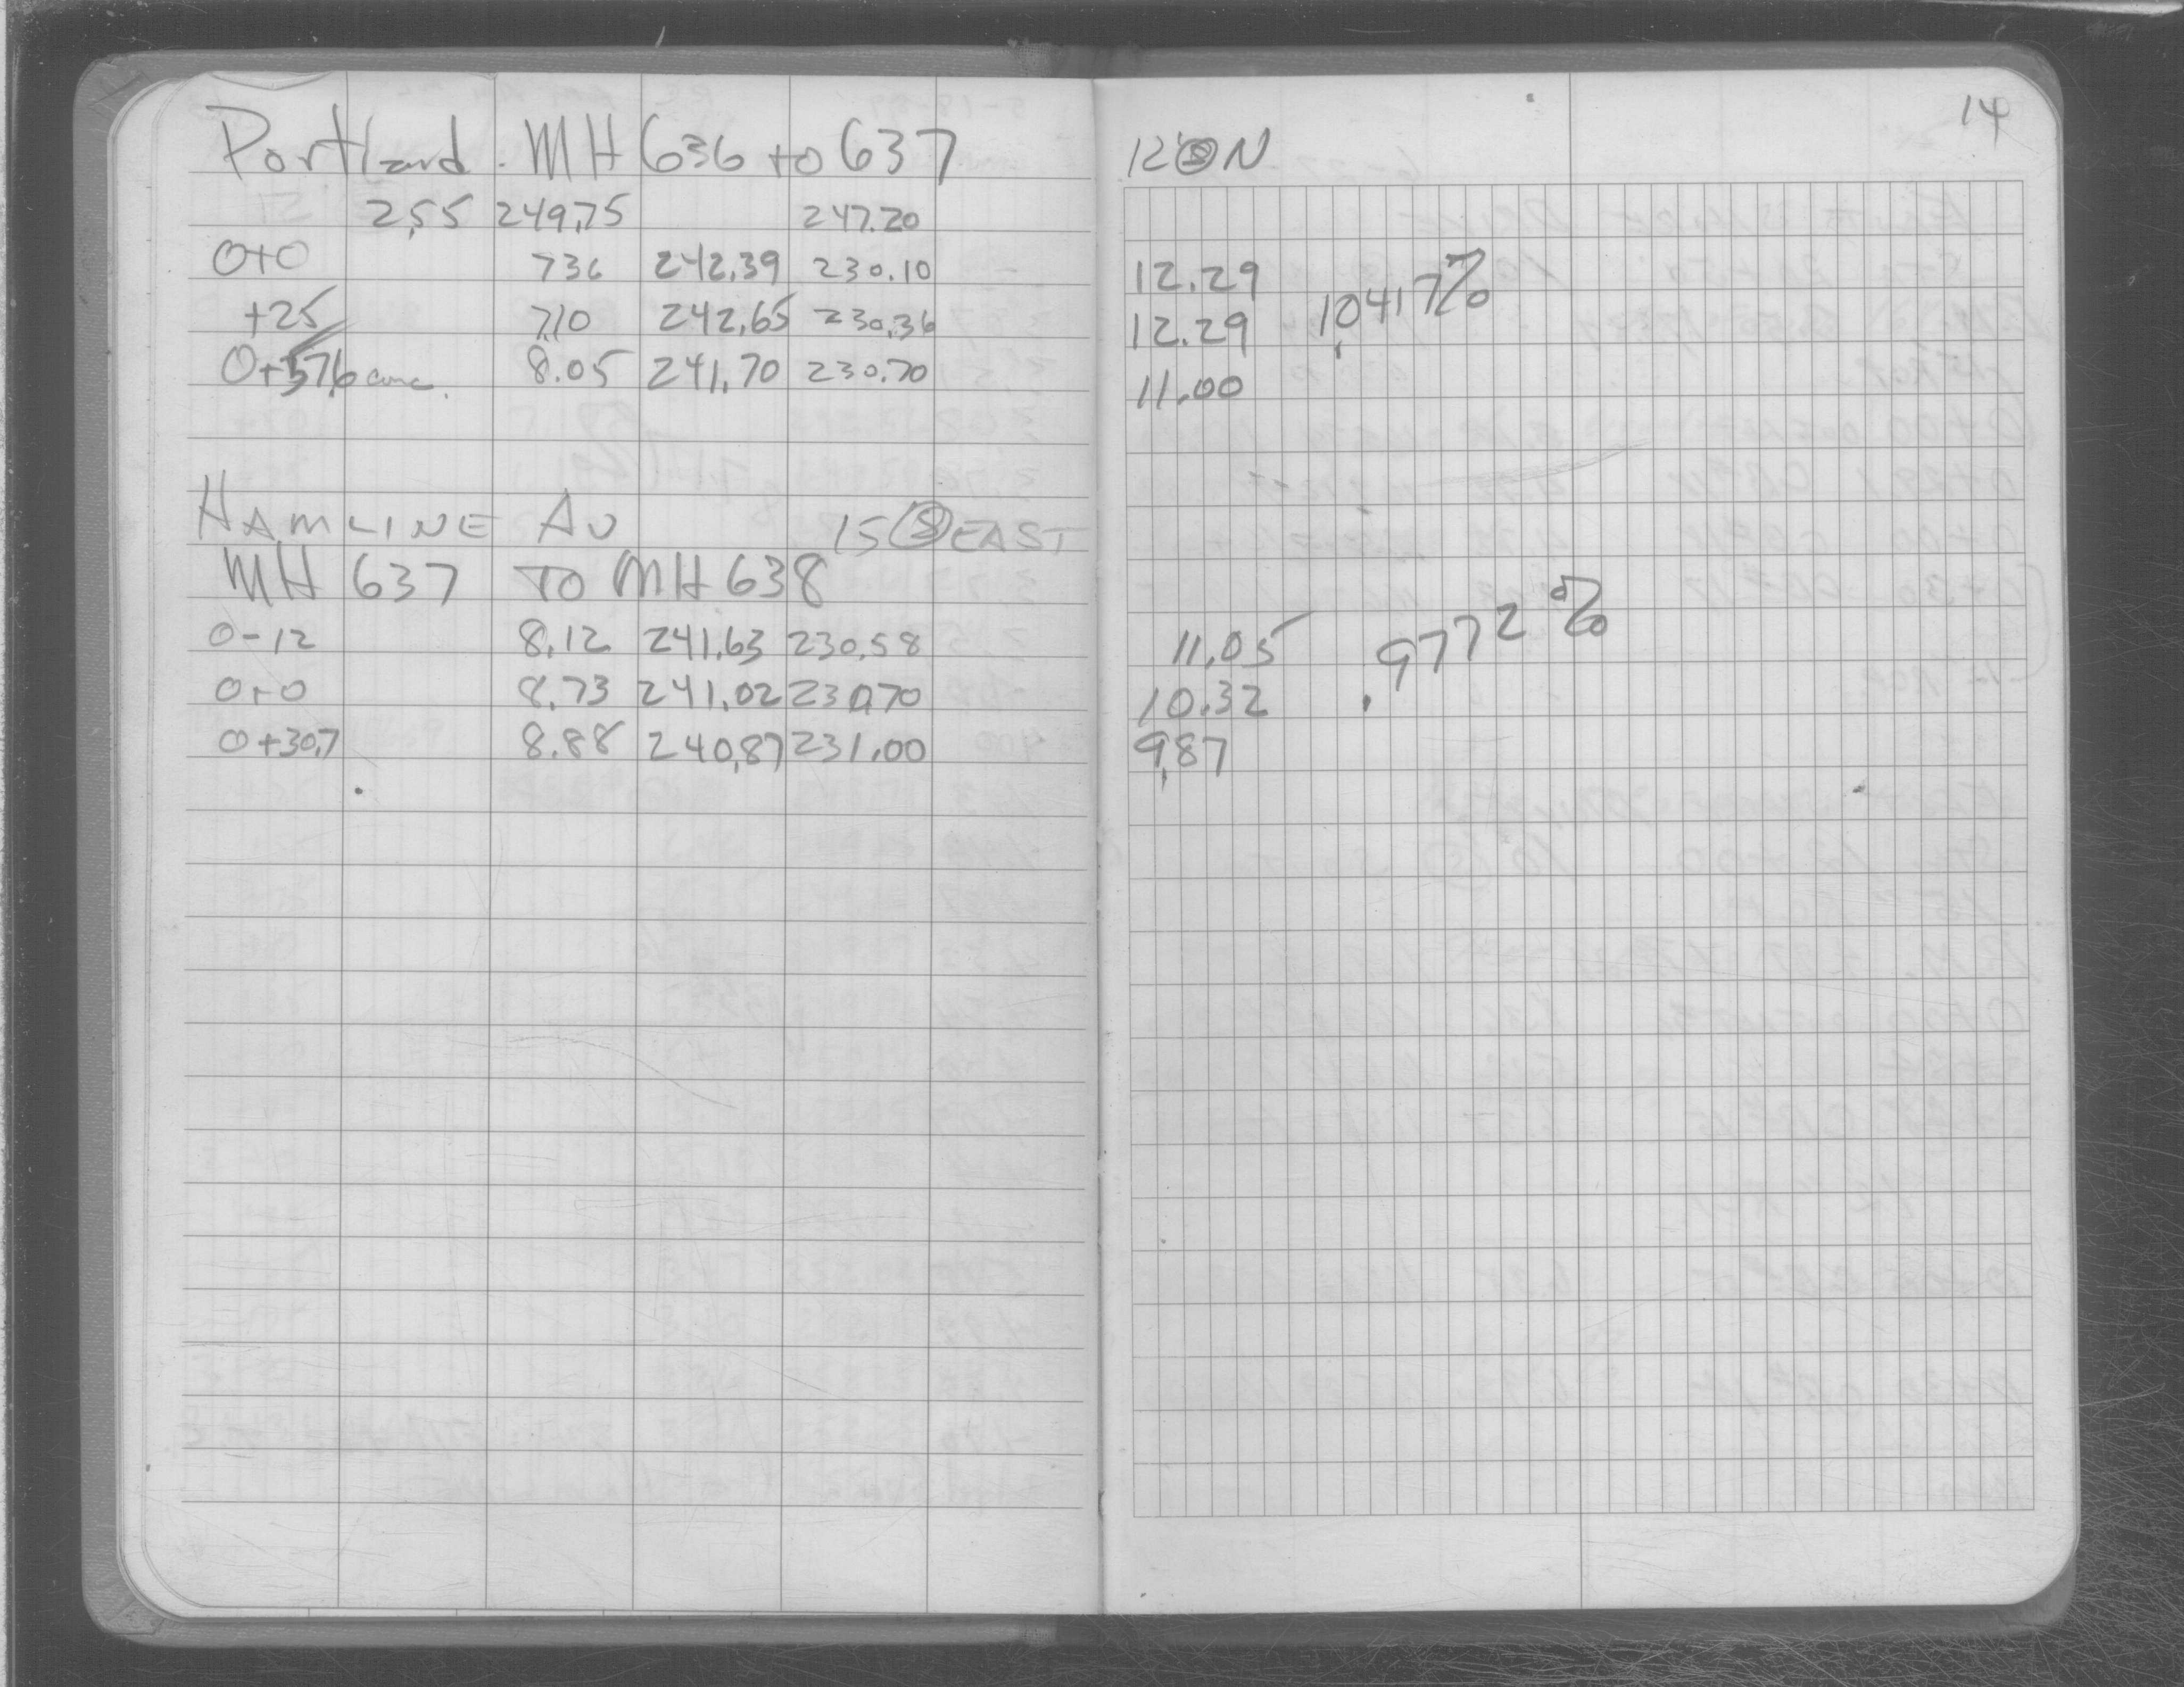 Portland. MH 636 to 637
2.55 249.75 247.20
0+0 7.36 242.39 230.10
+25 7.10 242.65 230.36
0+57.6 8.05 241.70 230.70
HAMLINE AV 15 Ⓢ EAST
MH 637 TO MH 638
0-12 8.12 241.63 230.58
0+0 8.73 241.02 230.70
0+30.7 8.88 240.87 231.00
14
12' Ⓢ N
12.29
12.29 1.0417%
11.00
11.05 .9772%
10.32
9.87